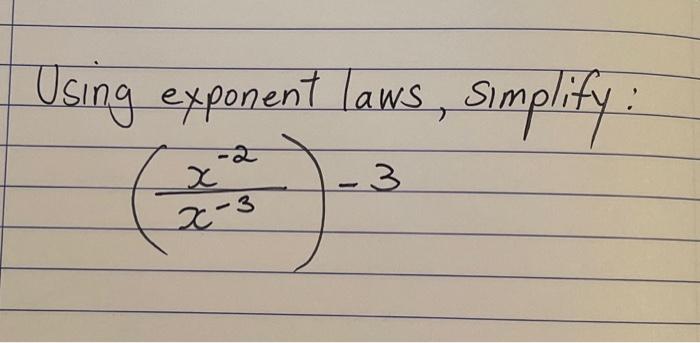 Using exponent laws, simplify:
(x^-2 / x^-3) - 3